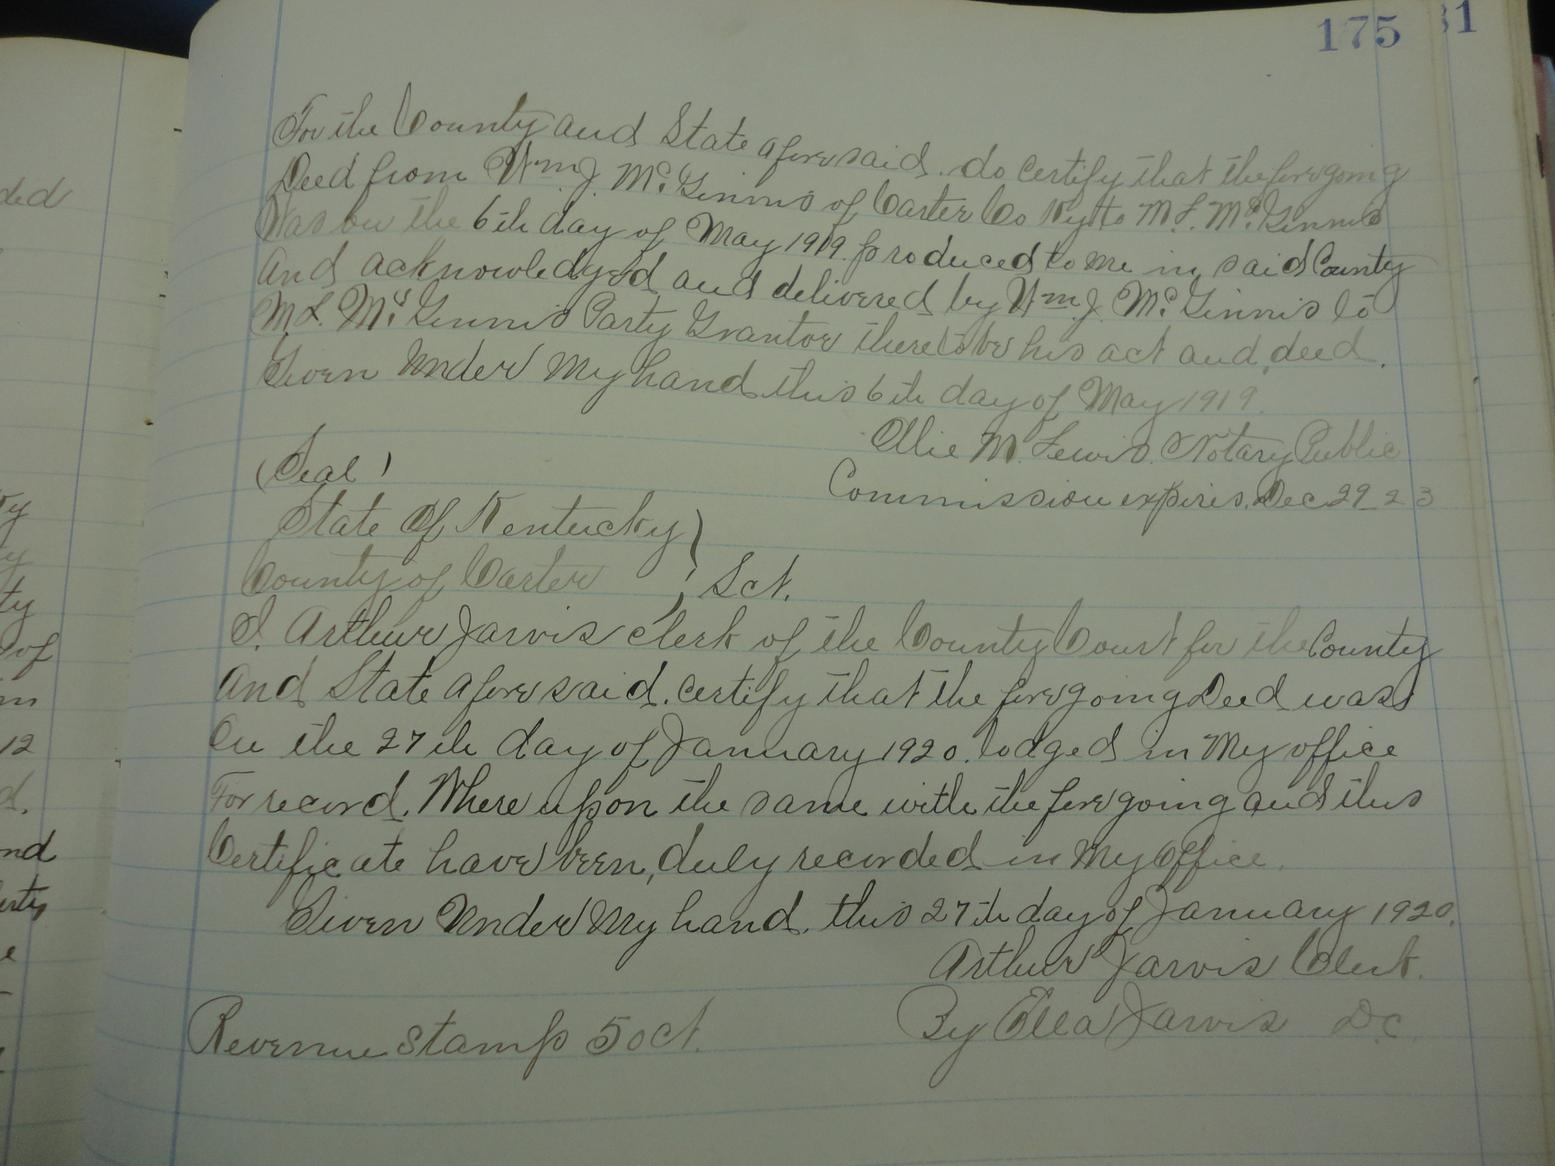 175
31
For the County and State aforesaid. do certify that the foregoing
Deed from Wm J. McGinnis of Carter Co Ky to M L. McGinnis
Was on the 6th day of May 1919. produced to me in said County
And acknowledged and delivered by Wm J. McGinnis to
M L. McGinnis Party Grantor thereto to be his act and deed.
Given Under My hand this 6th day of May 1919.
Ollie M. Lewis. Notary Public
Commission expires. Dec 29 23
(Seal)
State Of Kentucky }
County of Carter } Sct.
I. Arthur Jarvis Clerk of the County Court for the County
And State aforesaid. certify that the foregoing Deed was
On the 27th day of January 1920. lodged in My office
For record. Where upon the same with the foregoing and this
Certificate have been, duly recorded in My Office.
Given Under My hand. this 27th day of January 1920.
Arthur Jarvis Clerk.
By Ella Jarvis D.C
Revenue Stamp 50ct.
ded
ty
of
m
12
d.
nd